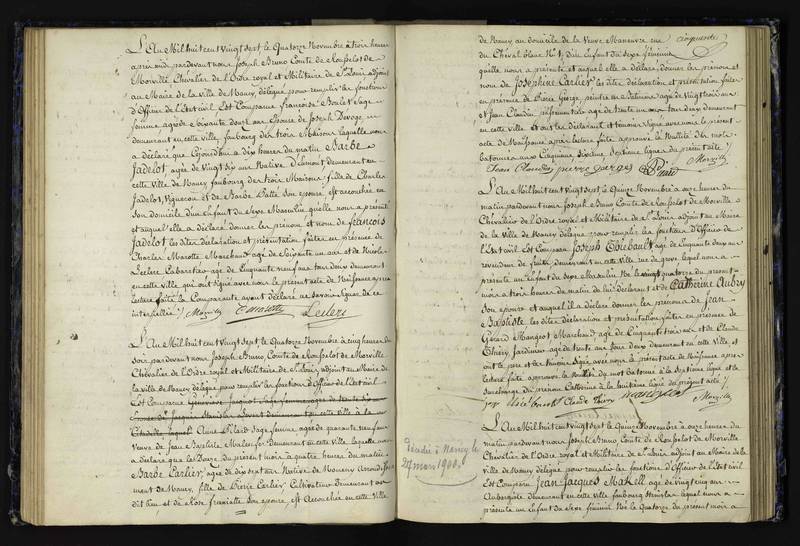 L'An Mil huit cent vingt sept le Quatorze Novembre à trois heures
après midi pardevant nous Joseph Bruno Comte de
Morville Chevalier de l'Ordre royal et Militaire de St Louis adjoint
au Maire de la ville de Nancy, délégué pour remplir les fonctions
d'Officier de l'Etat civil Est Comparue françoise Boulet Sage
femme agée de Soixante douze ans Epouse de Joseph
demeurant en cette ville, faubourg des trois Maisons laquelle nous
a déclaré que Cejourd'hui à dix heures du matin Barbe
Jadelot, agée de vingt six ans Native demeurant en
cette ville de Nancy faubourg des trois Maisons, fille de Charles
Jadelot, Vigneron et de Barbe son épouse, est accouchée en
son domicile d'un Enfant du Sexe Masculin qu'elle nous a présenté
et auquel elle a déclaré donner les prénom et nom de francois
Jadelot les dites déclaration et présentation faites en présence de
Charles Marotte Marchand agé de Soixante un ans et de Nicolas
Leclere Cabaretier agé de Cinquante neuf ans tous deux demeurant
en cette ville qui ont signé avec nous le présent acte de Naissance après
lecture faite la Comparante ayant déclaré ne savoir signer de ce
interpellée. Morville Marotte Leclere
L'An Mil huit cent vingt sept le Quatorze Novembre à cinq heures du
soir pardevant nous Joseph Bruno Comte de Morville
Chevalier de l'Ordre royal et Militaire de St Louis adjoint au Maire de
la ville de Nancy délégué pour remplir les fonctions d'Officier de l'Etat civil
Est Comparue Genevieve Jacquot, Sage femme agée de trente six
Epouse de Jacques Stanislas demeurant en cette ville à la
Citadelle laquelle Anne Sage femme agée de quarante neuf ans
Veuve de Jean Baptiste demeurant en cette ville, laquelle nous
a déclaré que le Douze du présent mois à quatre heures du matin
Barbe Carlier, agée de dix sept ans Native de
de Nancy, fille de Pierre Carlier Cultivateur demeurant au
dit lieu et de Rose son épouse, est Accouchée en cette Ville
cinquante
de Nancy au domicile de la Veuve Maneuvre rue
du Cheval blanc No 1, d'un Enfant du Sexe féminin
qu'elle nous a présenté et auquel elle a déclaré donner les prénom et
nom de Joséphine Carlier les dites déclaration et présentation faites
en présence de Pierre George, peintre en cette ville agé de vingt trois ans
et Jean Claudin agé de trente un ans tous deux demeurant
en cette ville et ont les déclarant et témoins signé avec nous le présent
acte de Naissance après lecture faite approuvé la Nullité des mots
septième ligne du présent acte
Jean Claudin pierre george Morville
L'An Mil huit cent vingt sept le Quinze Novembre à onze heures du
matin pardevant nous Joseph Bruno Comte de Morville
Chevalier de l'Ordre royal et Militaire de St Louis adjoint au Maire
de la Ville de Nancy délégué pour remplir les fonctions d'Officier de
l'Etat civil Est Comparu Joseph Thiebault agé de Cinquante deux ans
revendeur de fruits demeurant en cette ville rue de grève lequel nous a
présenté un Enfant du sexe Masculin Né le quatorze du présent
mois à trois heures du matin de lui déclarant et de Catherine Aubry
Son épouse et auquel il a déclaré donner les prénoms de Jean
Baptiste les dites déclaration et présentation faites en présence de
Gérard Mangeot Marchand agé de Cinquante trois ans et de Claude
Thiery Jardinier agé de trente ans tous deux demeurant en cette ville et
ont le père et les témoins signé avec nous le présent acte de Naissance après
lecture faite approuvé la Nullité du mot à la septième ligne et la
surcharge du prénom Catherine à la huitième ligne du présent acte
Claude Thiery mangeot Morville
Décédée à Nancy le
27 mars 1900.
L'An Mil huit cent vingt sept le Quinze Novembre à onze heures du
matin pardevant nous Joseph Bruno Comte de Morville
Chevalier de l'Ordre royal et Militaire de St Louis adjoint au Maire de la
ville de Nancy délégué pour remplir les fonctions d'Officier de l'Etat civil
Est Comparu Jean Jacques Makell agé de vingt cinq ans
Aubergiste demeurant en cette ville faubourg Stanislas lequel nous a
présenté un Enfant du sexe féminin Né le Quatorze du présent mois à